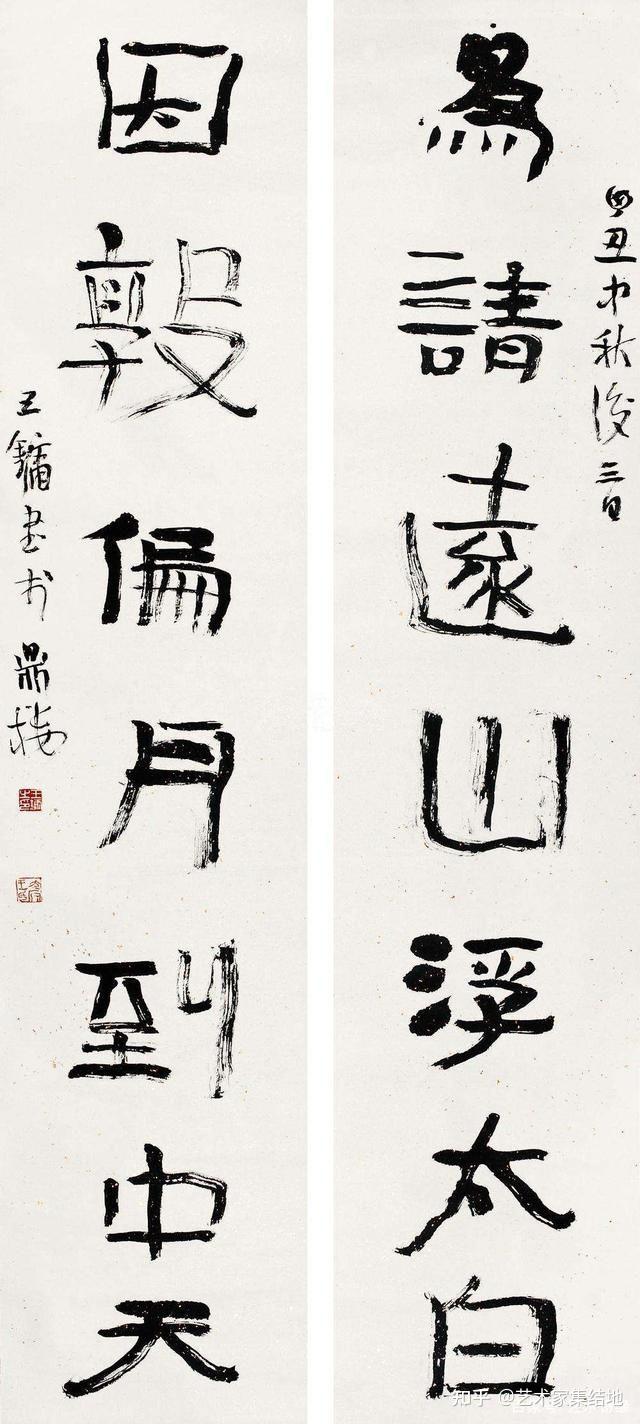 為請遠山浮太白
己丑中秋後三日
因敦偏月到中天
王鏞書於鼎樓
知乎 @艺术家集结地